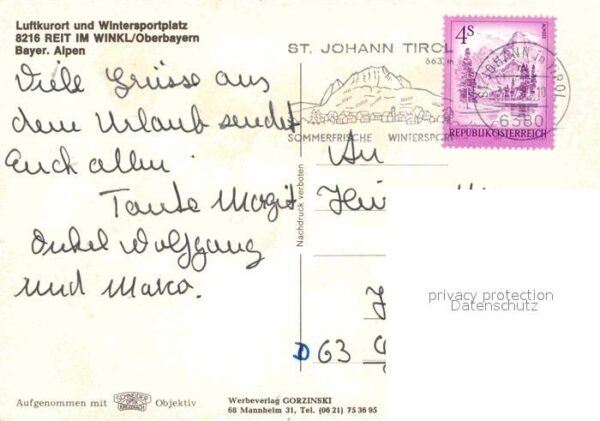 Luftkurort und Wintersportplatz
8216 REIT IM WINKL/Oberbayern
Bayer. Alpen
Viele Grüsse aus
dem Urlaub sendet
Euch allen
Tante Magit
Onkel Wolfgang
und Marco.
ST. JOHANN TIROL
663 m
SOMMERFRISCHE WINTERSPORT
4s
REPUBLIK ÖSTERREICH
ST. JOHANN in TIROL
6380
An
Nachdruck verboten
privacy protection
Datenschutz
D 63
Aufgenommen mit SCHNEIDER KREUZNACH Objektiv
Werbeverlag GORZINSKI
68 Mannheim 31, Tel. (06 21) 75 36 95